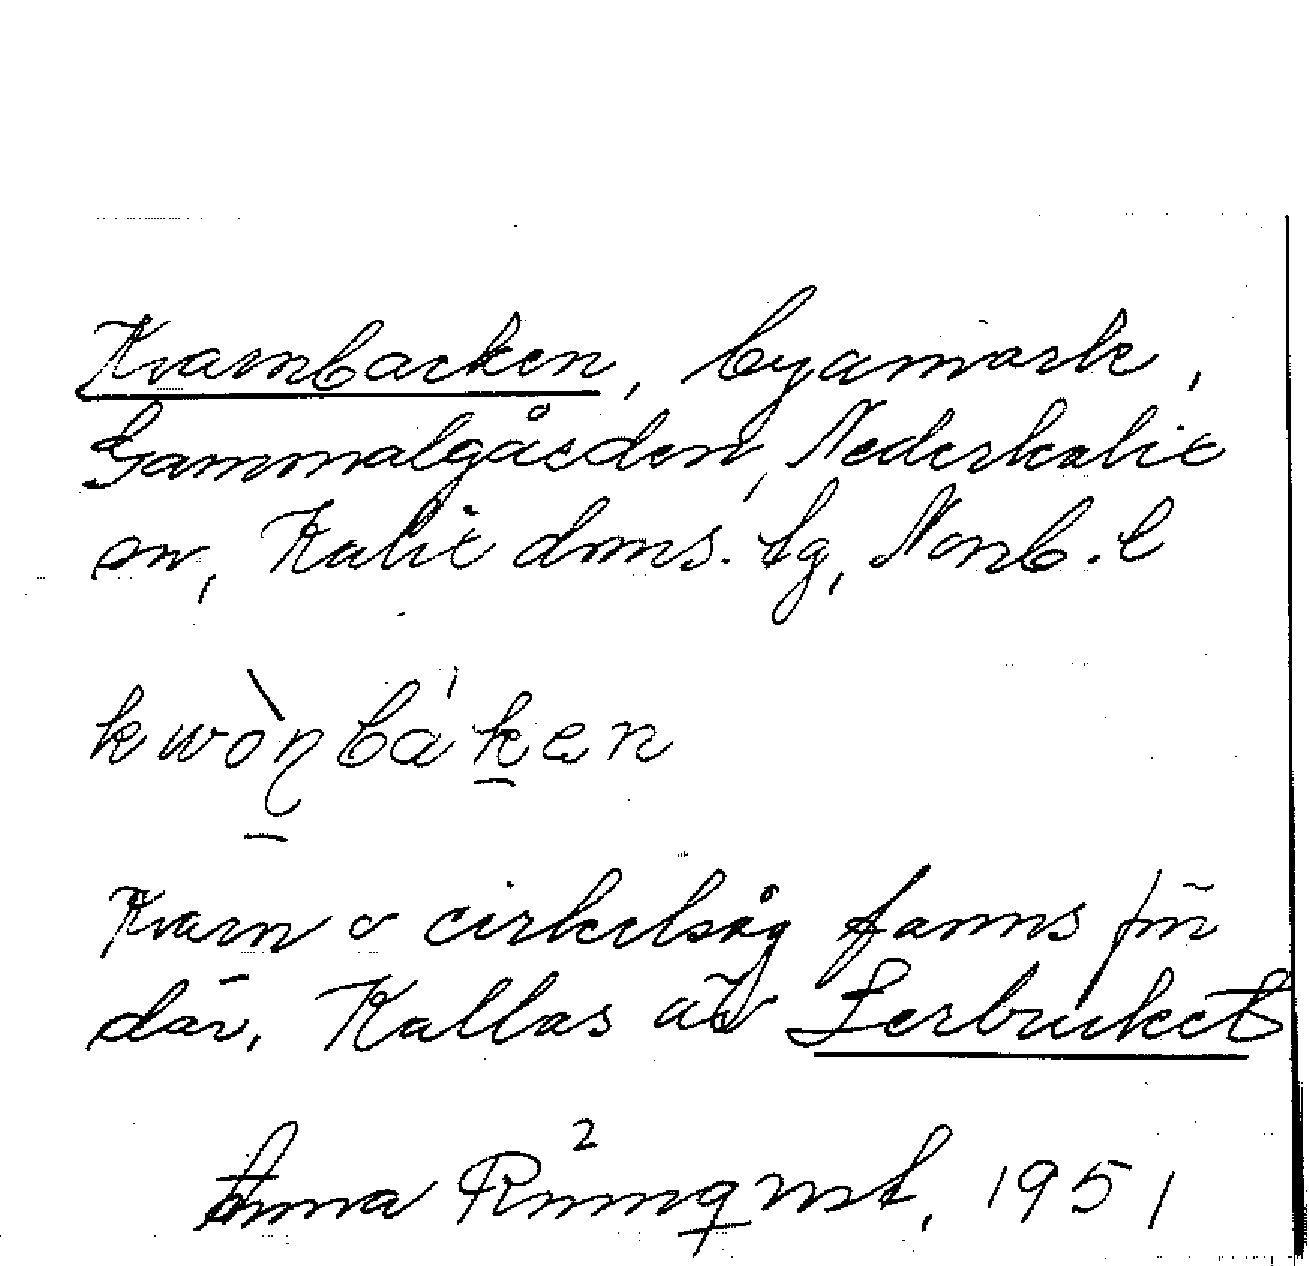 Kvarnbacken, byamark,
Gammalgården, Nederkalix
sn, Kalix doms. tg, Norrb. l
kwòṇbá'ken
Kvarn o cirkelsåg fanns förr
där. Kallas äv Lerbruket
Anna Rönnqvist, 1951